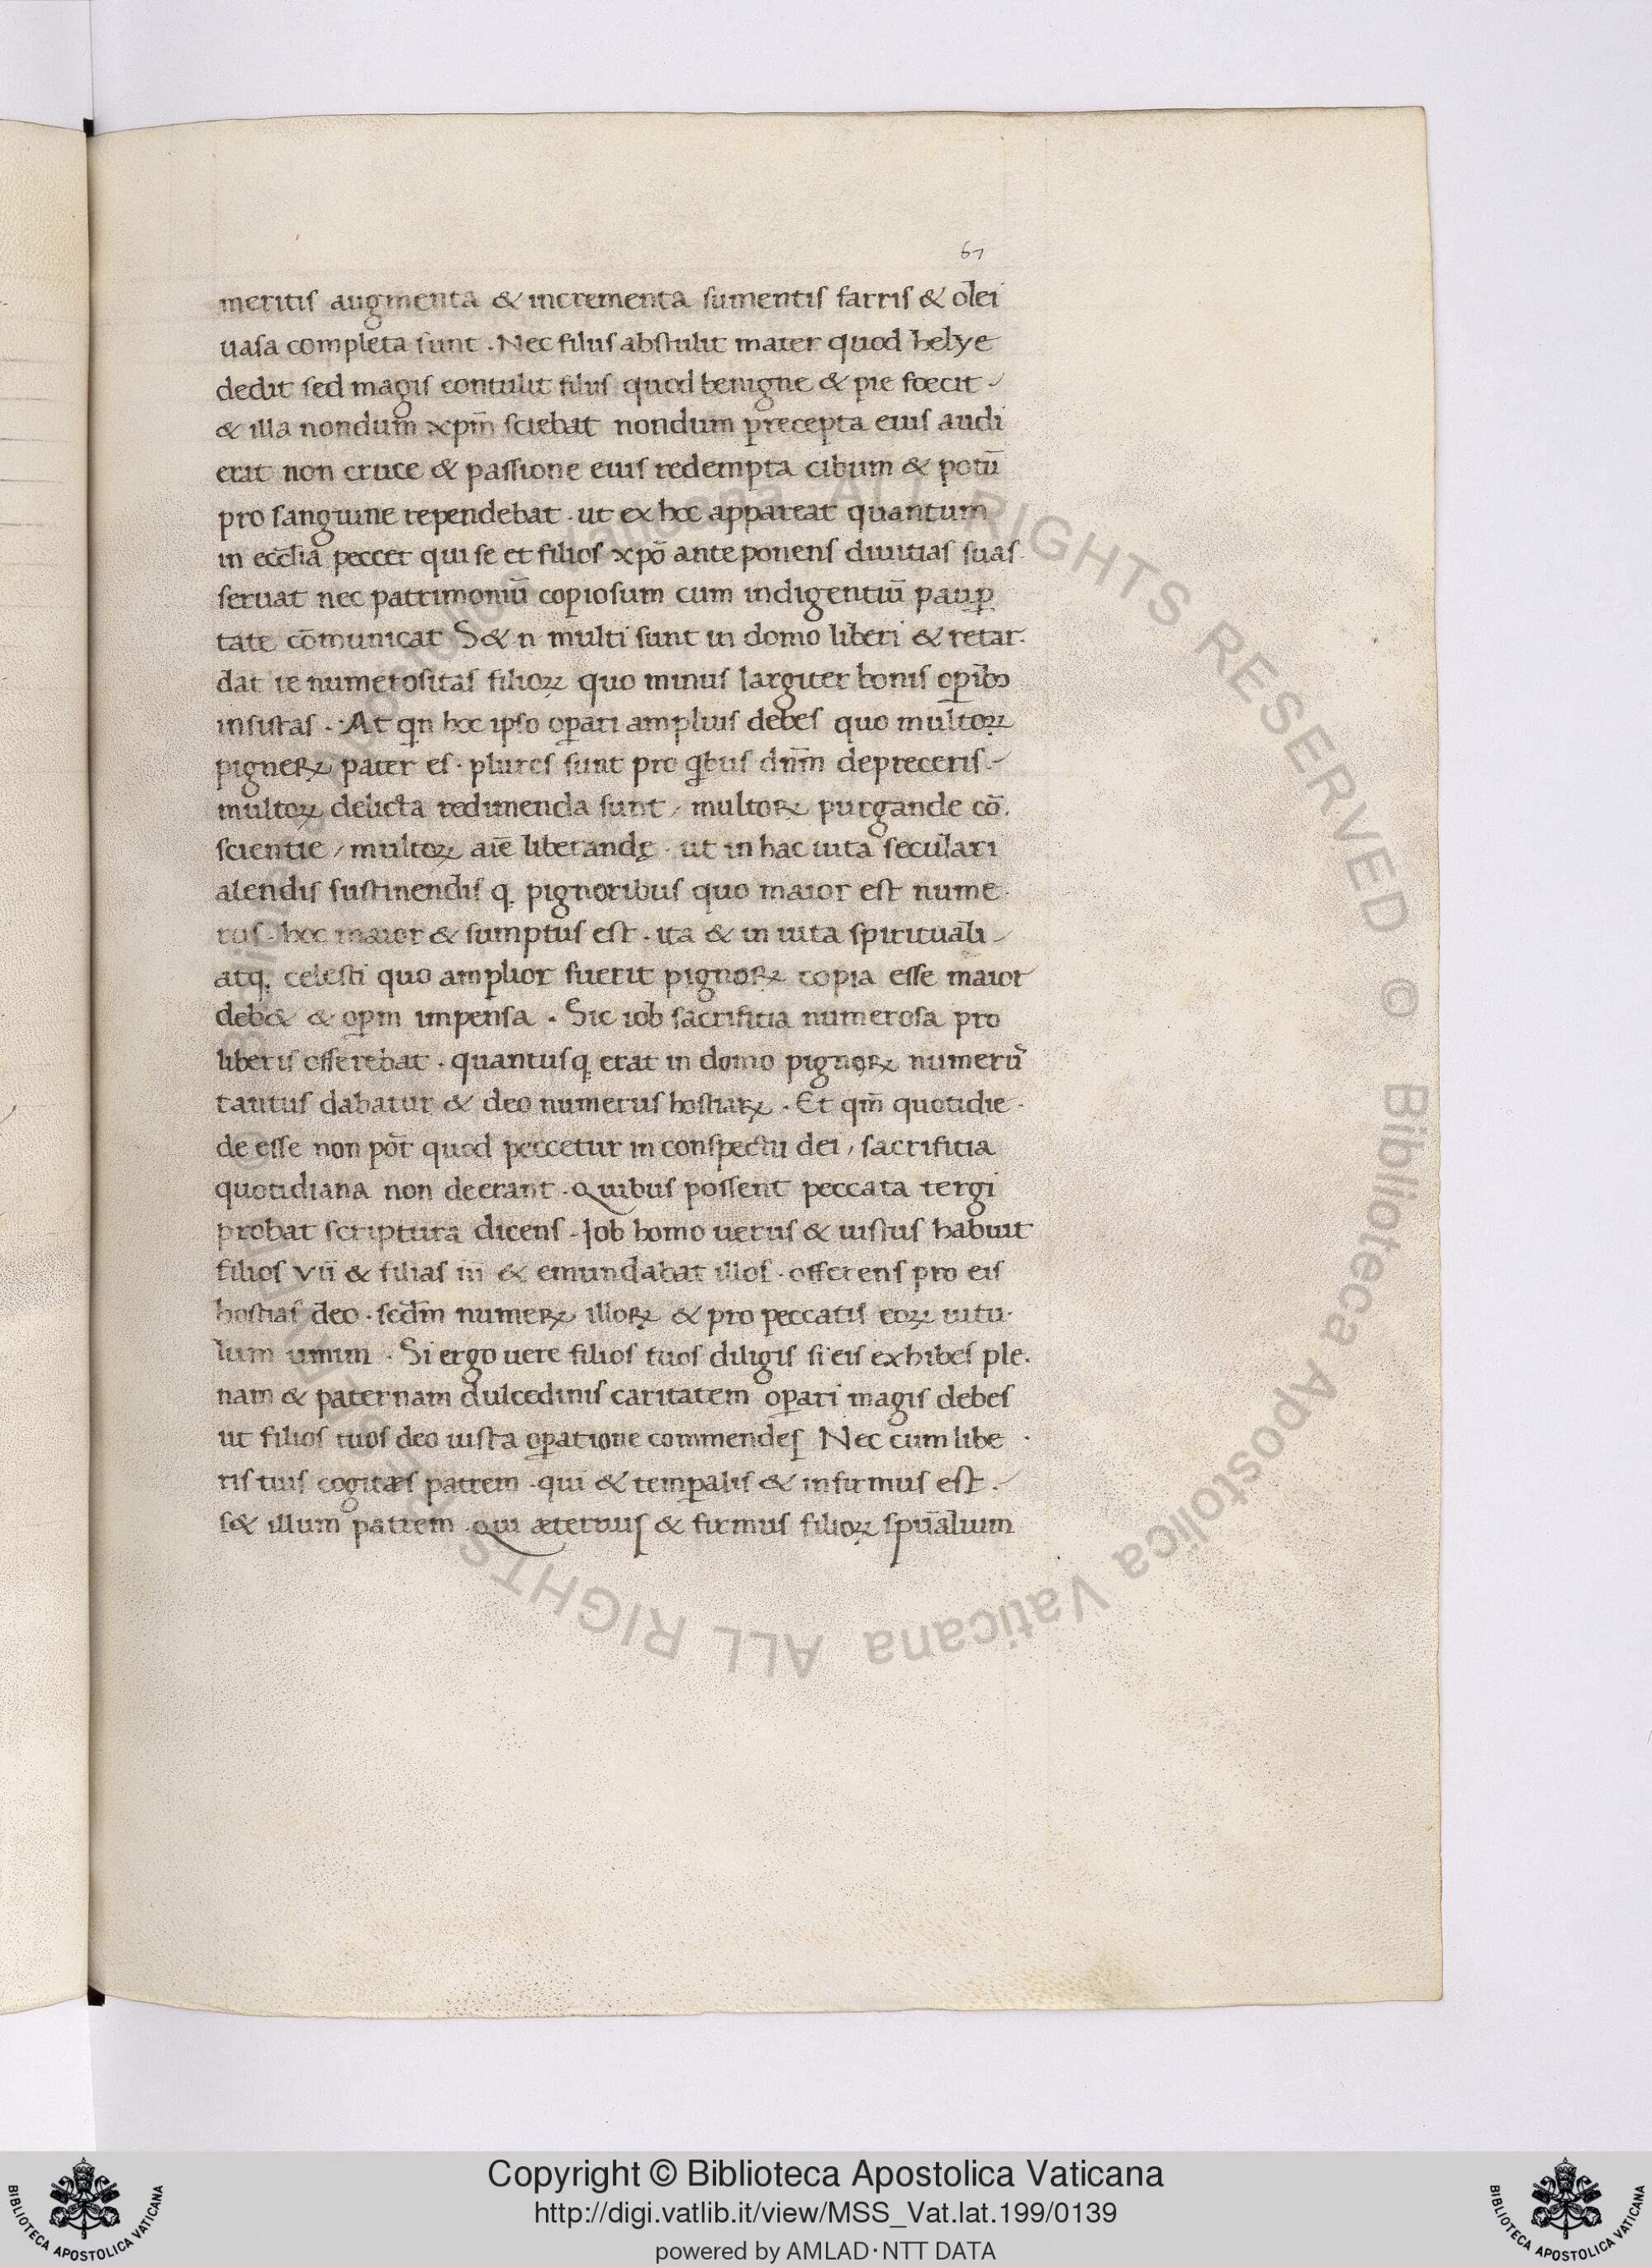 67
meritis augmenta & incrementa sumentis farris & olei
uasa completa sunt . Nec filiis abstulit mater quod helye
dedit sed magis contulit filiis quod benigne & pie foecit
& illa nondum xpm̄ sciebat nondum precepta eius audi
erat non cruce & passione eius redempta cibum & potū
pro sanguine rependebat . ut ex hoc appareat quantum
in eccl̄ia peccet qui se et filios xpō anteponens diuitias suas
seruat nec patrimoniū copiosum cum indigentiū paup̱
tate cōmunicat S& n multi sunt in domo liberi & retar.
dat te numerositas filioꝝ quo minus largiter bonis op̱ibɔ
insistas . At qn hoc ipso op̱ari amplius debes quo multoꝝ
pigneꝝ pater es . plures sunt pro qbus dnm̄ depreceris .
multoꝝ delicta redimenda sunt / multoꝝ purgande cō.
scientie / multoꝝ aīe liberandę . ut in hac uita seculari
alendis sustinendis q. pignoribus quo maior est nume.
rus . hoc maior & sumptus est . ita & in uita spirituali
atq. celesti quo amplior fuerit pignoꝝ copia esse maior
deb& & op̱m impensa . Sic iob sacrificia numerosa pro
liberis offerebat . quantusq erat in domo pignoꝝ numerꝰ
tantus dabatur & deo numerus hostiaꝝ . Et qm̄ quotidie .
de esse non pōt quod peccetur in conspectu dei / sacrificia
quotidiana non deerant . Quibus possent peccata tergi
probat scriptura dicens . Iob homo uerus & iustus habuit
filios vii & filias iii & emundabat illos . offerens pro eis
hostias deo . scd̄m numeꝝ illoꝝ & pro peccatis eoꝝ uitu.
lum unum . Si ergo uere filios tuos diligis si eis exhibes ple.
nam & paternam dulcedinis caritatem op̱ari magis debes
ut filios tuos deo iusta op̱atione commendes Nec cum libe .
ris tuis cogitæs patrem . qui & temp̱alis & infirmus est .
s& illum patrem . Qui æternus & firmus filioꝝ spūalium
© Biblioteca Apostolica Vaticana ALL RIGHTS RESERVED
Copyright © Biblioteca Apostolica Vaticana
http://digi.vatlib.it/view/MSS_Vat.lat.199/0139
powered by AMLAD·NTT DATA
BIBLIOTECA APOSTOLICA VATICANA
BIBLIOTECA APOSTOLICA VATICANA